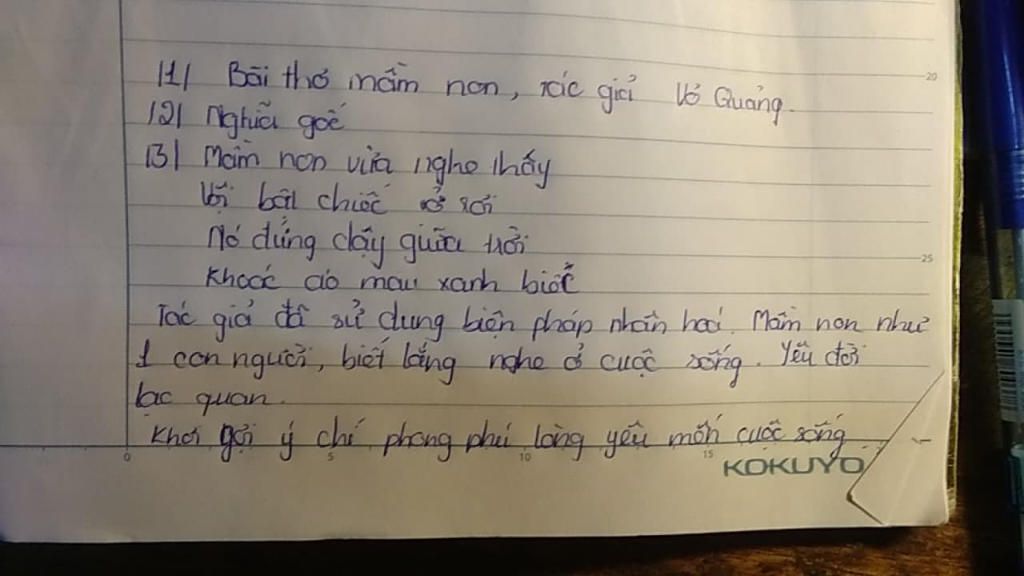 |1| Bài thơ mầm non, tác giả Võ Quảng.
|2| Nghĩa gốc
|3| Mầm non vừa nghe thấy
Vội bật chiếc vỏ rơi
Nó đứng dậy giữa trời
Khoác áo mau xanh biếc
Tác giả đã sử dụng biện pháp nhân hoá. Mầm non như
1 con người, biết lắng nghe ở cuộc sống. Yêu đời
lạc quan.
Khơi gợi ý chí phong phú lòng yêu mến cuộc sống
KOKUYO
0 5 10 15
20
25